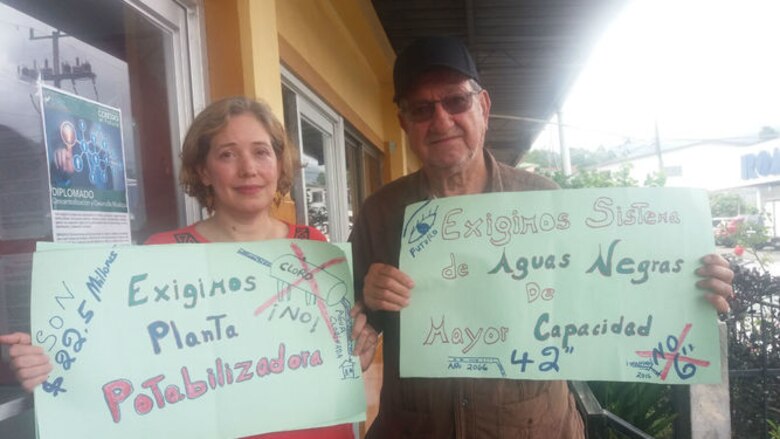 DIPLOMADO
SON
$ 22.5 Millones
Exigimos
Planta
Potabilizadora
CLORO
¡NO!
FUTURO
Exigimos Sistema
de Aguas Negras
De
Mayor Capacidad
42"
NO
6"